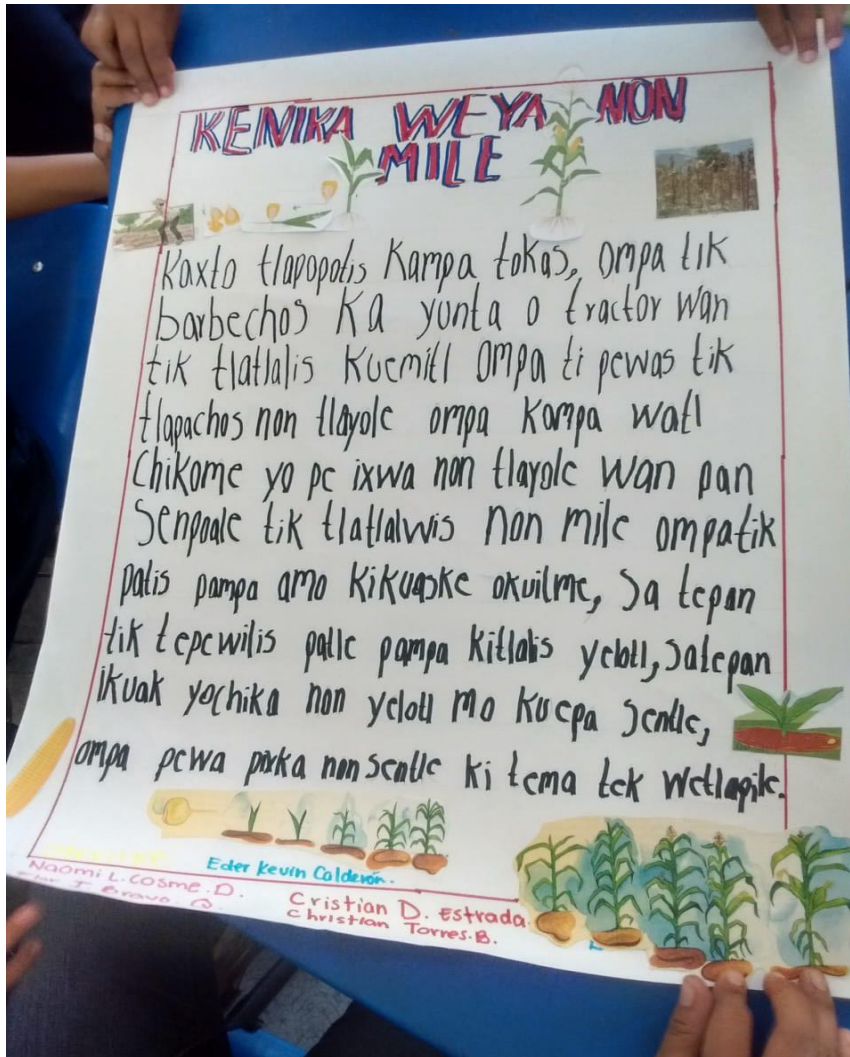 KENIKA WEYA NON
MILE
Kaxto tlapopotis Kampa tokas, ompa tik
barbechos Ka yunta o tractor wan
tik tlatlalis Kuemitl ompa ti pewas tik
tlapachos non tlayole ompa Kampa watl
Chikome yo pe ixwa non tlayole wan pan
Senpoale tik tlatlalwis non mile ompatik
patis pampa amo kikuaske okuilme, Sa tepan
tik tepewilis patle pampa kitlalis yelotl, Satepan
ikuak yochika non yelotl mo kuepa Sentle,
ompa pewa pixka non Sentle ki tema tek Wetlapile.
Eder Kevin Calderón.
Naomi L. Cosme. D.
Cristian D. Estrada.
Bravo
Christian Torres. B.